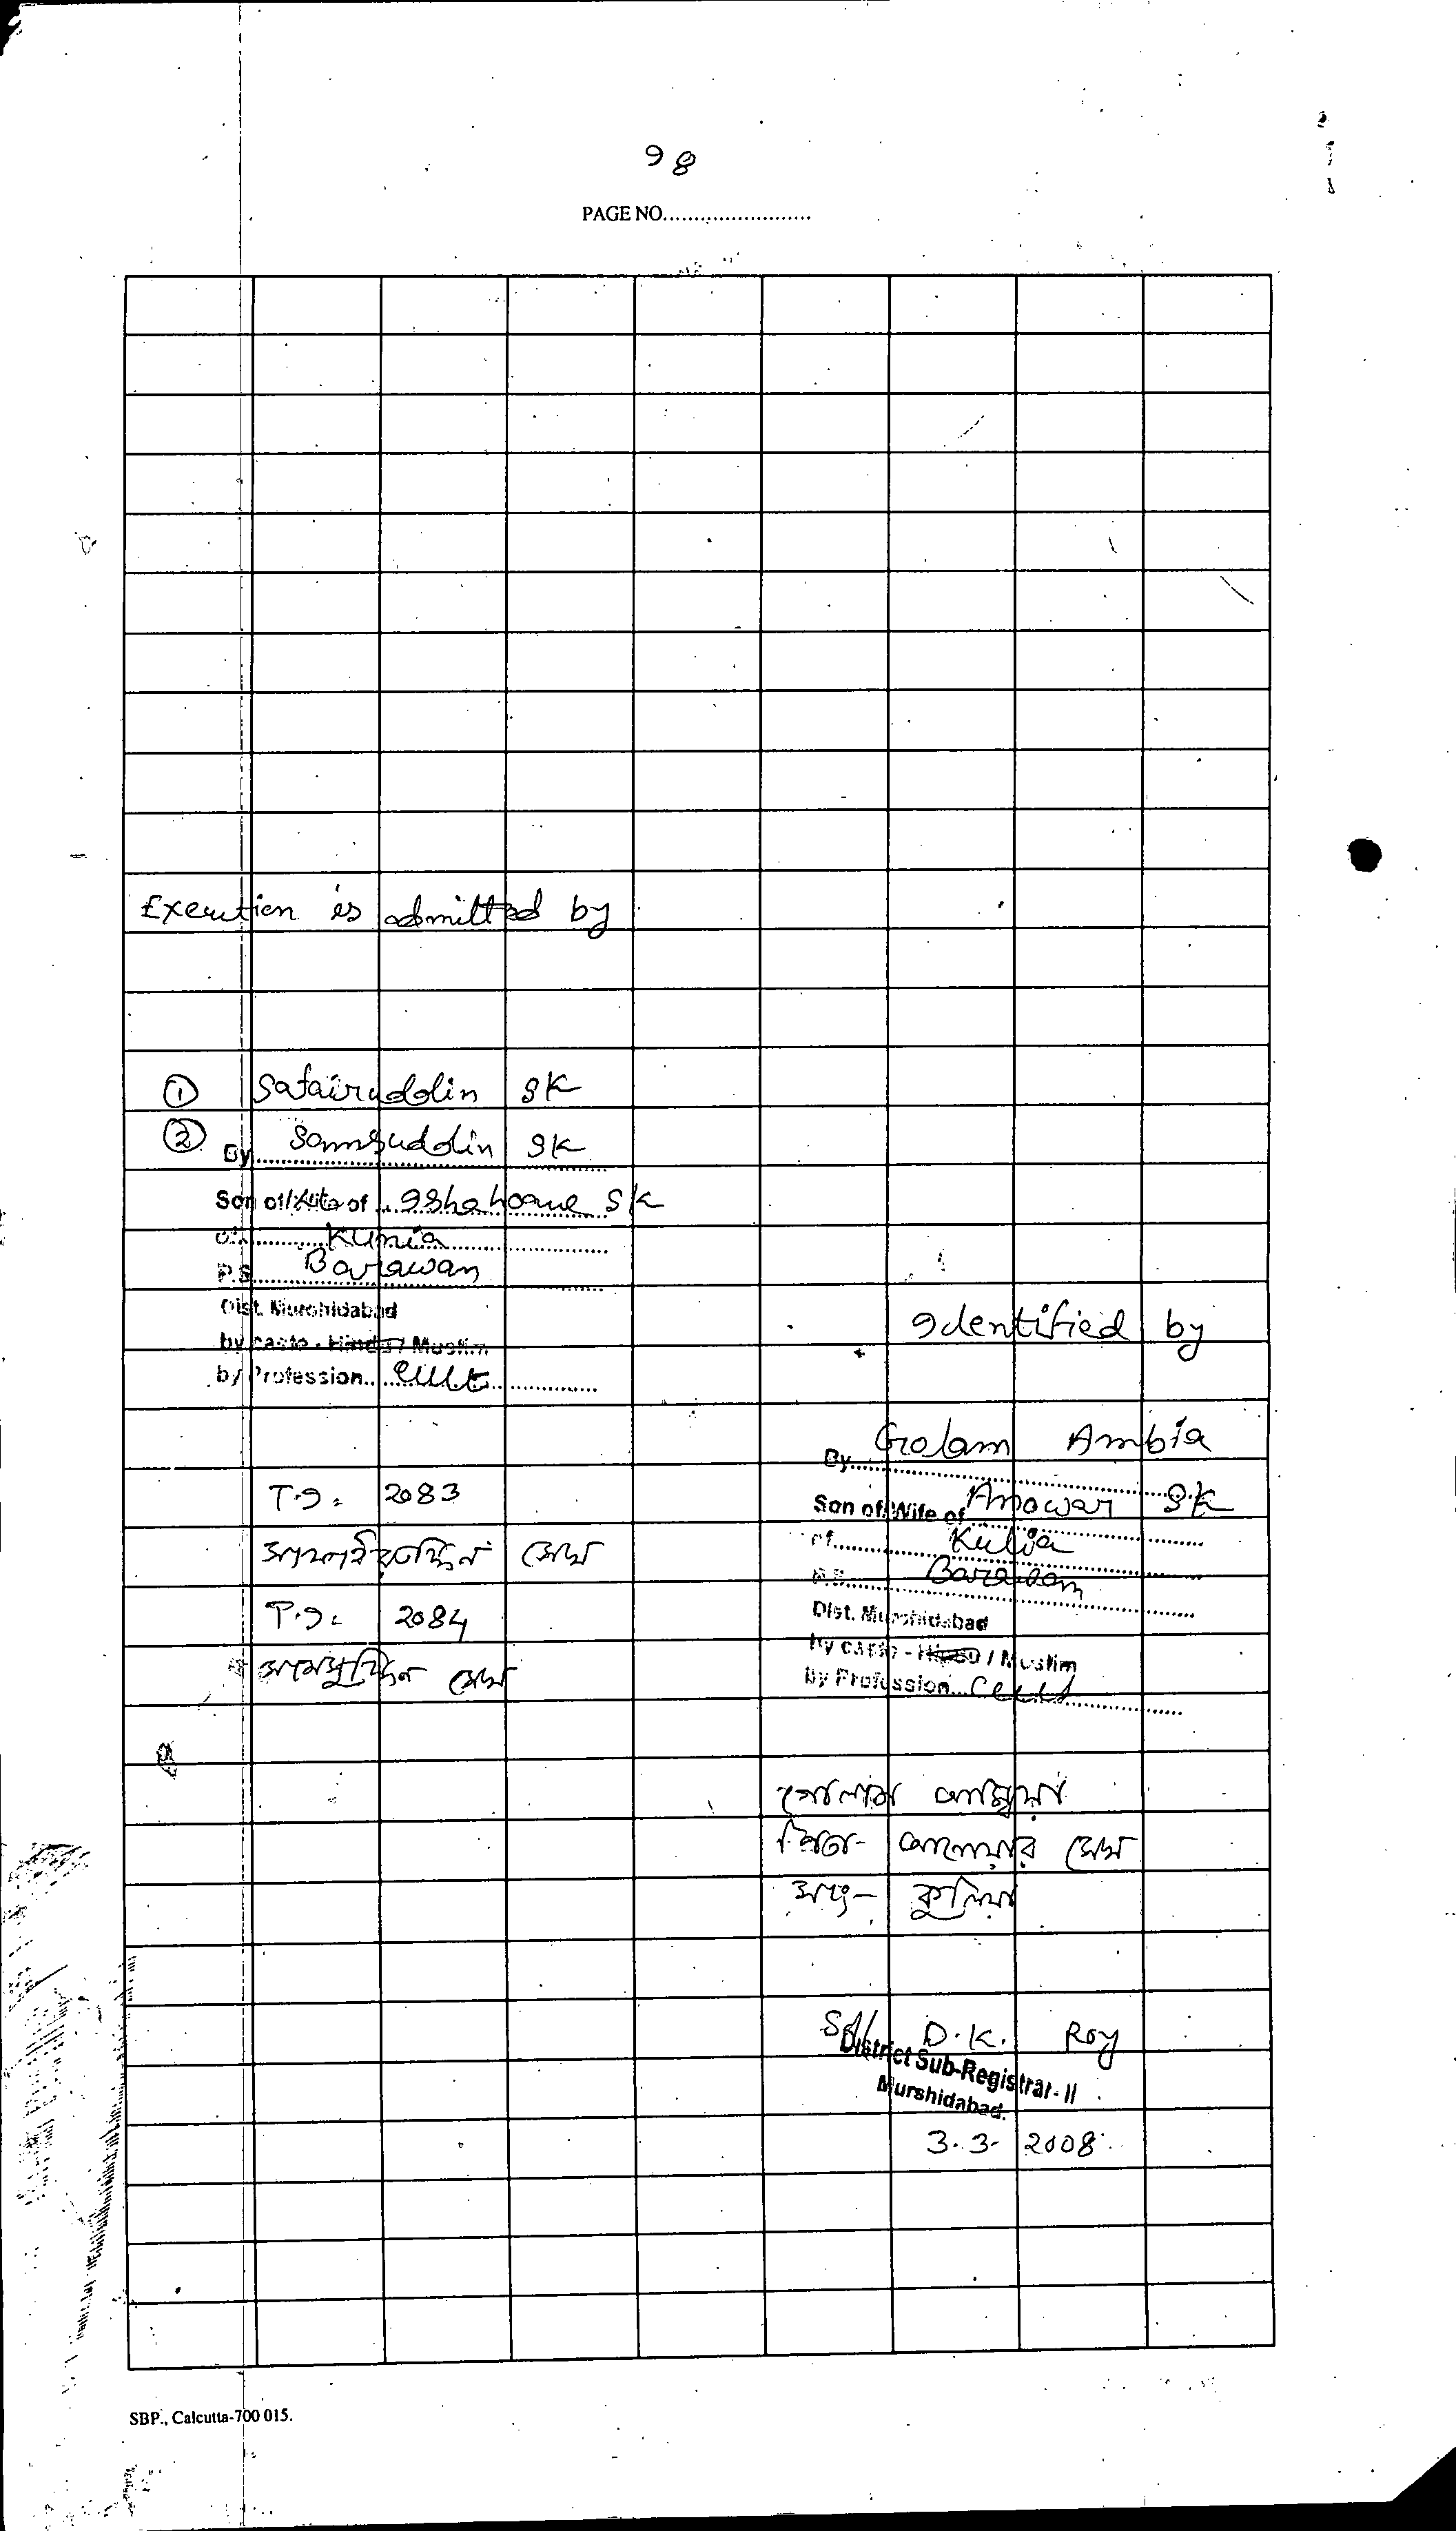 98
PAGE NO.........................
Execution is admitted by
① Safairuddin SK
② By Samsuddin SK
Son of/Wife of Ishahoque SK
of Kumia
P.S. Barawan
Dist. Murshidabad
by caste - Hindu / Muslim
by Profession Cult
Identified by
By Golam Ambia
Son of/Wife of Anowar SK
of Kulia
P.S. Barawan
Dist. Murshidabad
by caste - Hindu / Muslim
by Profession Cult
T.I. 2083
সাফাইরুদ্দিন সেখ
T.I. 2084
সামসুদ্দিন সেখ
গোলাম আম্বিয়া
পিতা- আনোয়ার সেখ
সাং- কুলিয়া
Sd/ D.K. Roy
District Sub-Registrar-II
Murshidabad.
3.3.2008
SBP., Calcutta-700 015.